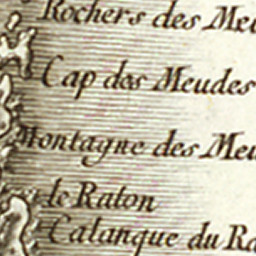 Rochers des Meu
Cap des Meudes
Montagne des Meu
le Raton
Calanque du Ra